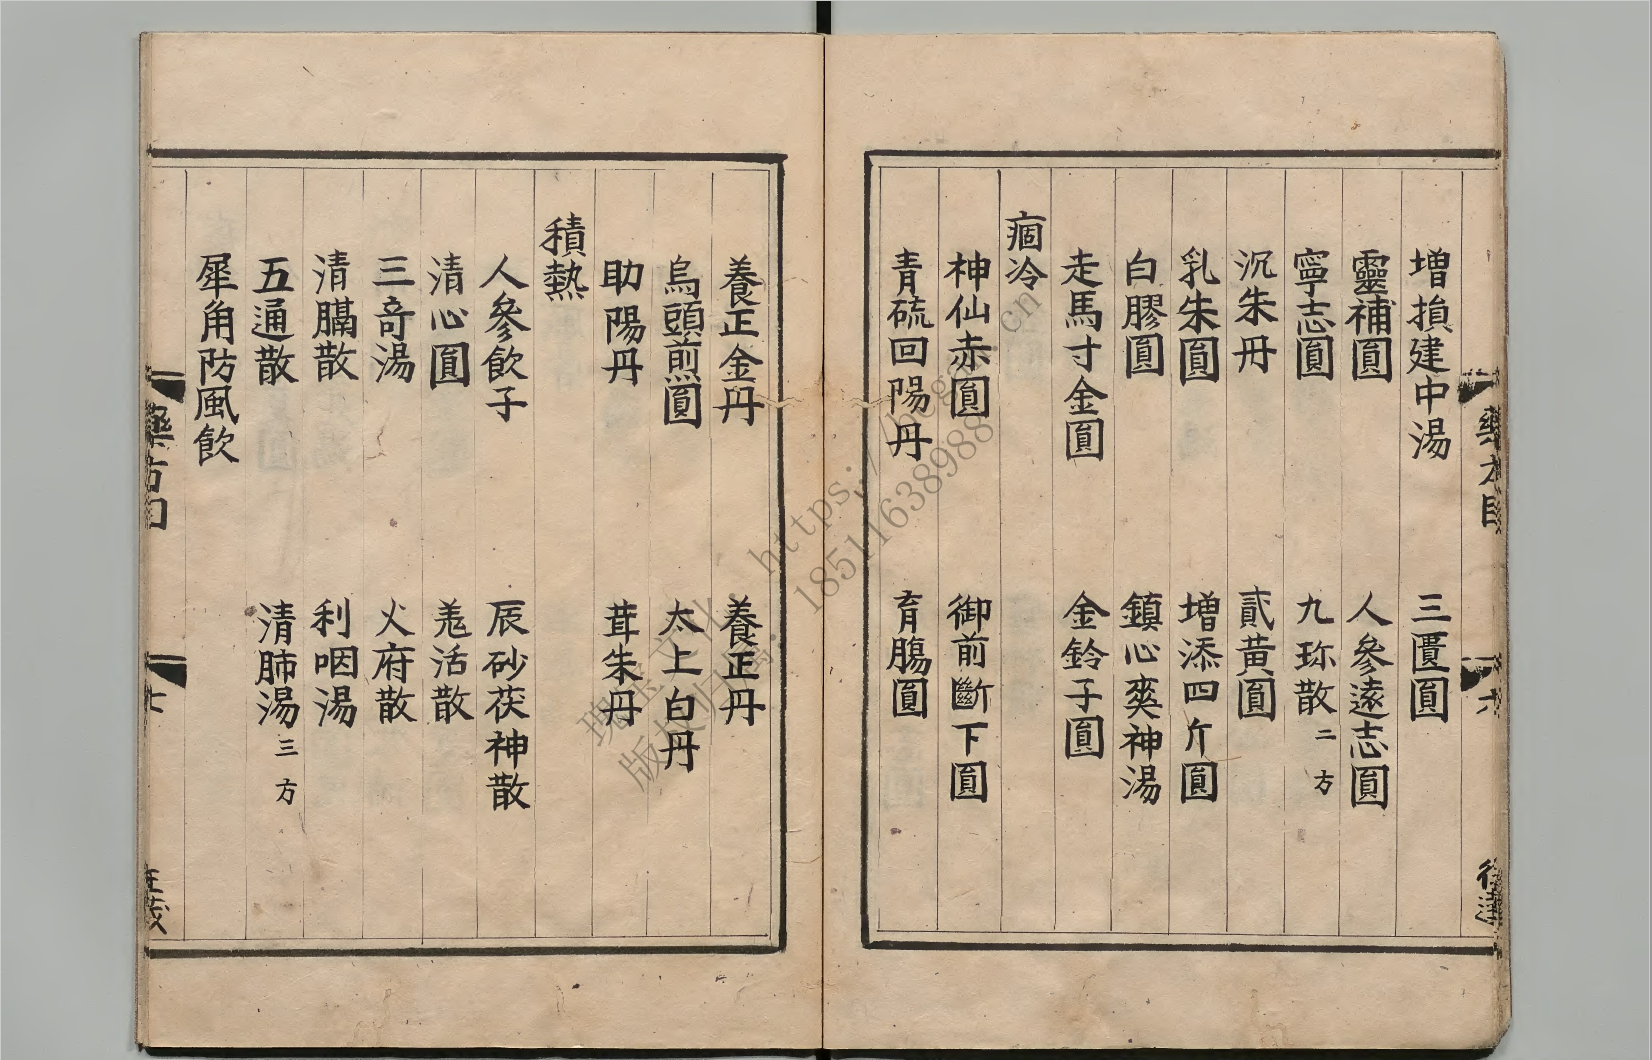 增損建中湯　三匱圓
靈補圓　人參遠志圓
寧志圓　九珎散二方
沉朱丹　貳黃圓
乳朱圓　增添四斤圓
白膠圓　鎮心爽神湯
走馬寸金圓　金鈴子圓
痼冷
神仙赤圓　御前斷下圓
青硫回陽丹　育腸圓
養正金丹　養正丹
烏頭煎圓　太上白丹
助陽丹　茸朱丹
積熱
人參飲子　辰砂茯神散
清心圓　羗活散
三奇湯　火府散
清膈散　利咽湯
五通散　清肺湯三方
犀角防風飲
藥方目
六
藥方目
七
https://
18511638988